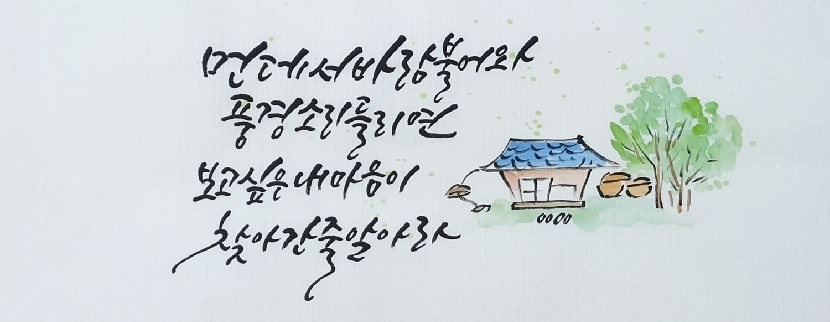 먼데서바람불어와
풍경소리들리면
보고싶은내마음이
찾아간줄알아라